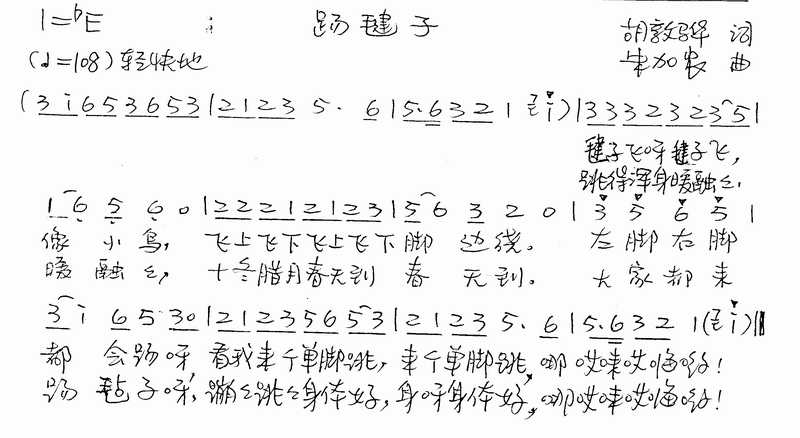 1=♭E 踢毽子 胡敦骅 词
(♩=108) 轻快地 朱加农 曲
(3 i 6 5 3 6 5 3 | 2 1 2 3 5. 6 | 5. 6 3 2 1 i) | 3 3 3 2 3 2 3 5 |
毽子飞呀毽子飞,
跳得浑身暖融々,
1 6 5 6 0 | 2 2 2 1 2 1 2 3 | 5 6 3 2 0 | 3 5 6 5 |
像 小 鸟, 飞上飞下飞上飞下 脚 边绕。 左 脚 右 脚
暖 融 々, 十冬腊月春天到 春 天到。 大 家 都 来
3 i 6 5 3 0 | 2 1 2 3 5 6 5 3 | 2 1 2 3 5. 6 | 5. 6 3 2 1 (i) ‖
都 会踢呀, 看我来个单脚跳, 来个单脚跳, 哪 哎来哎嗨哟!
踢 毽子呀, 蹦々跳々身体好, 身呀身体好, 哪哎来哎嗨哟!